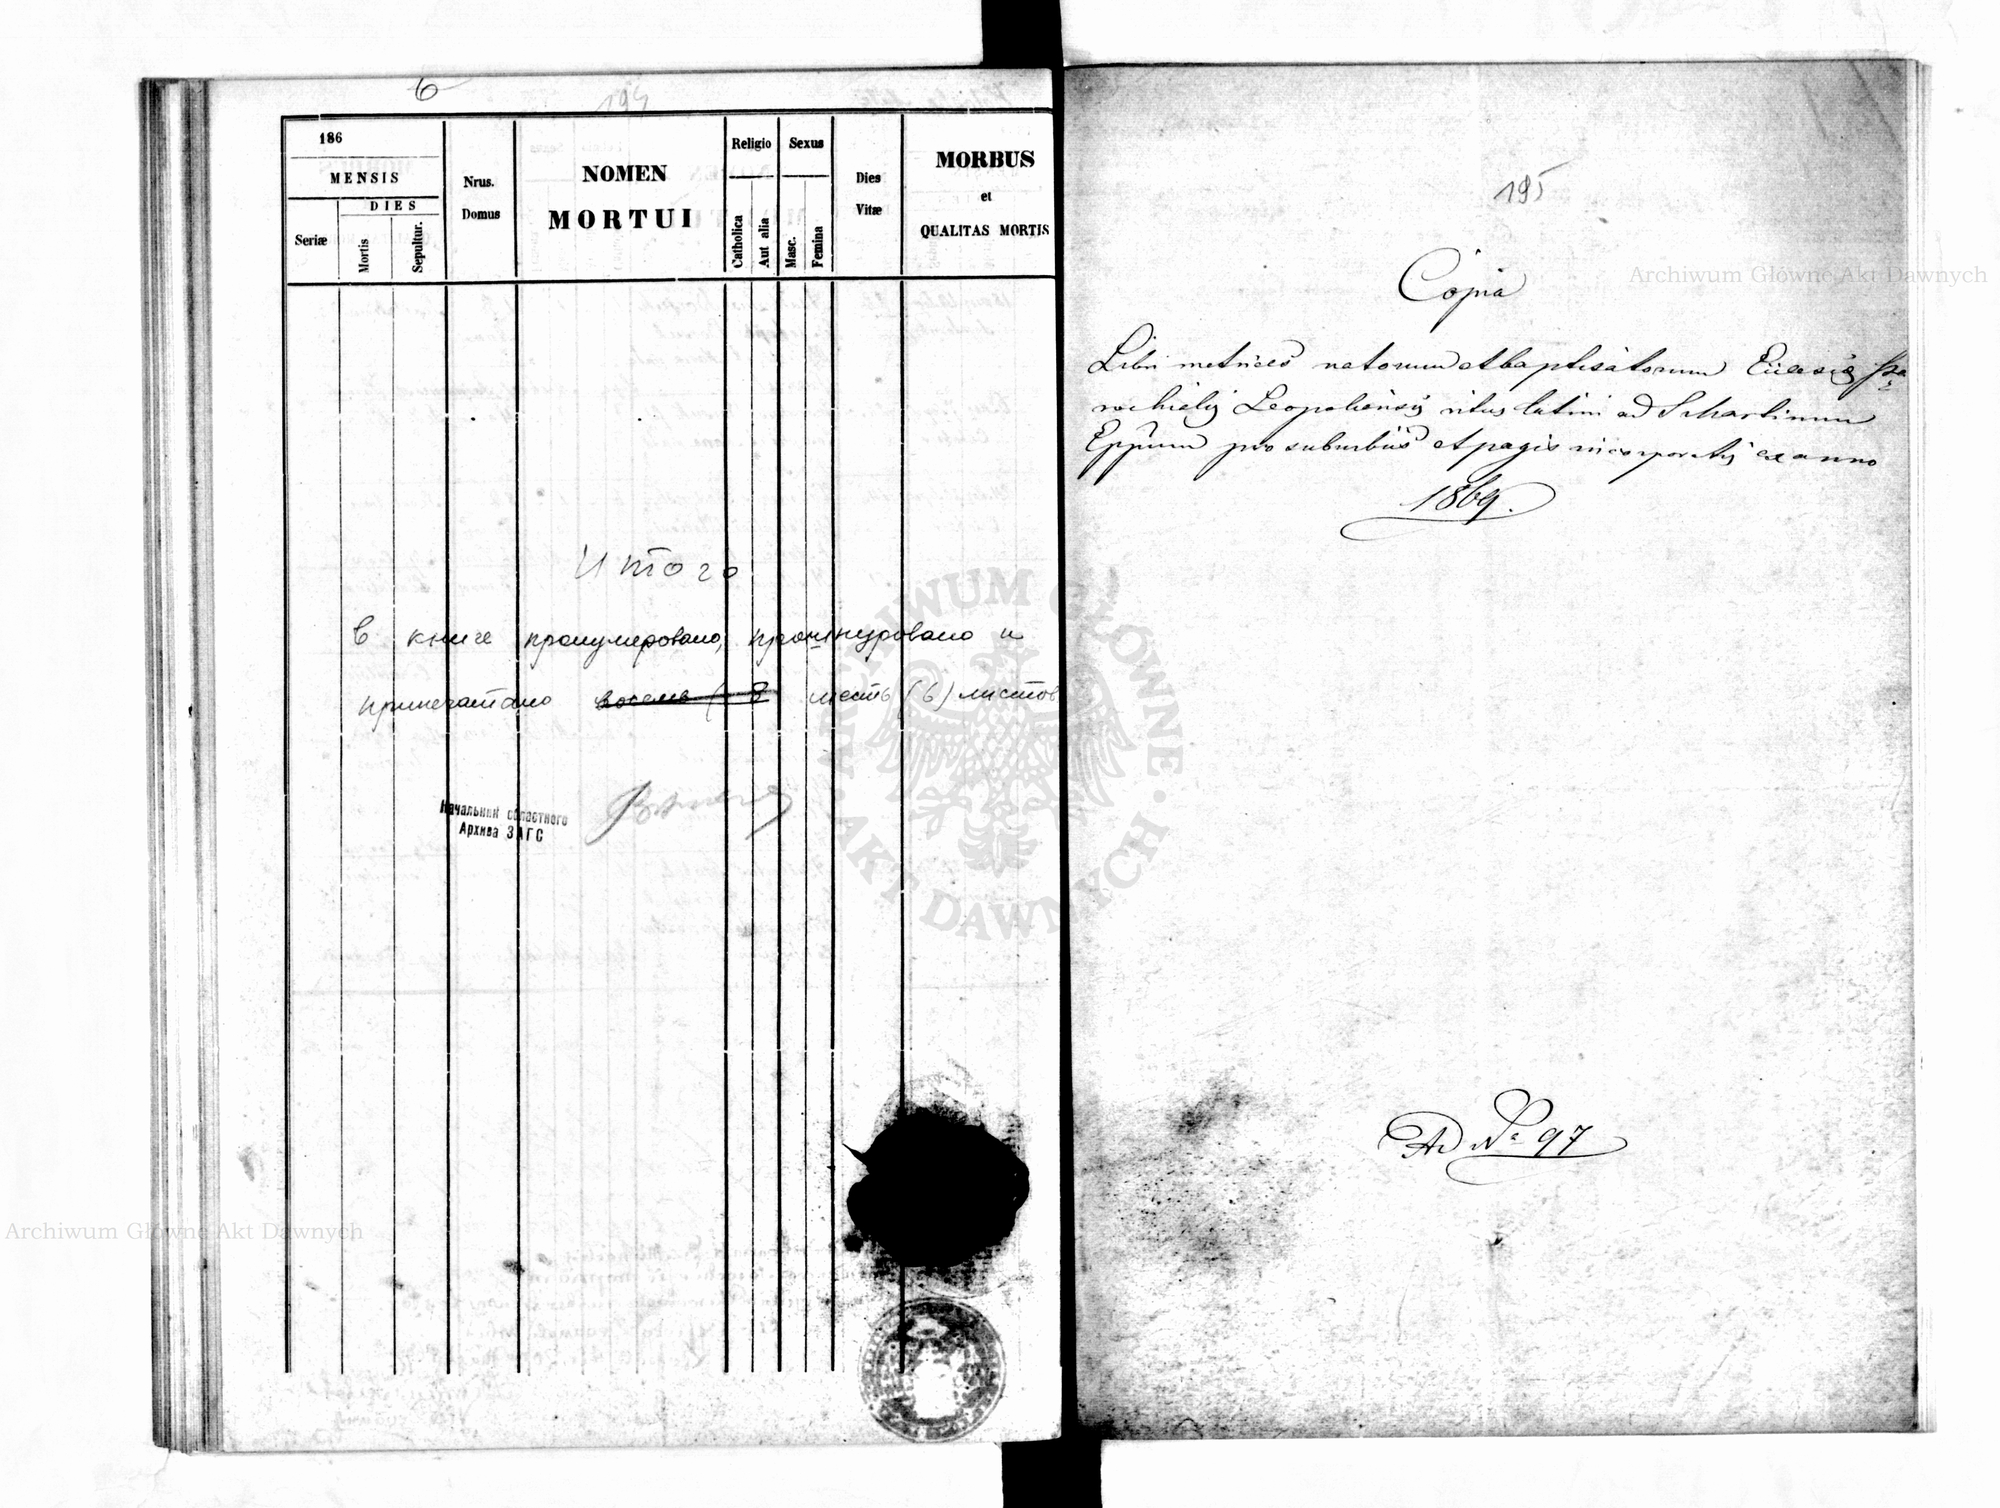 6
194
186
MENSIS
DIES
Seriæ
Mortis
Sepultur.
Nrus.
Domus
NOMEN
MORTUI
Religio
Catholica
Aut alia
Sexus
Masc.
Femina
Dies
Vitæ
MORBUS
et
QUALITAS MORTIS
Итого
в книге пронумеровано, прошнуровано и
припечатано восемь (8 шесть (6) листов
Начальник областного
Архива ЗАГС
195
Copia
Libri metrices natorum et baptisatorum Ecclesiæ Pa=
rochialis Leopoliensis ritus latini ad S Martinum
Eppum pro suburbiis et pagis incorporatis ex anno
1869.
Ad No 97
Archiwum Główne Akt Dawnych
Archiwum Główne Akt Dawnych
ARCHIWUM GŁÓWNE · AKT DAWNYCH ·